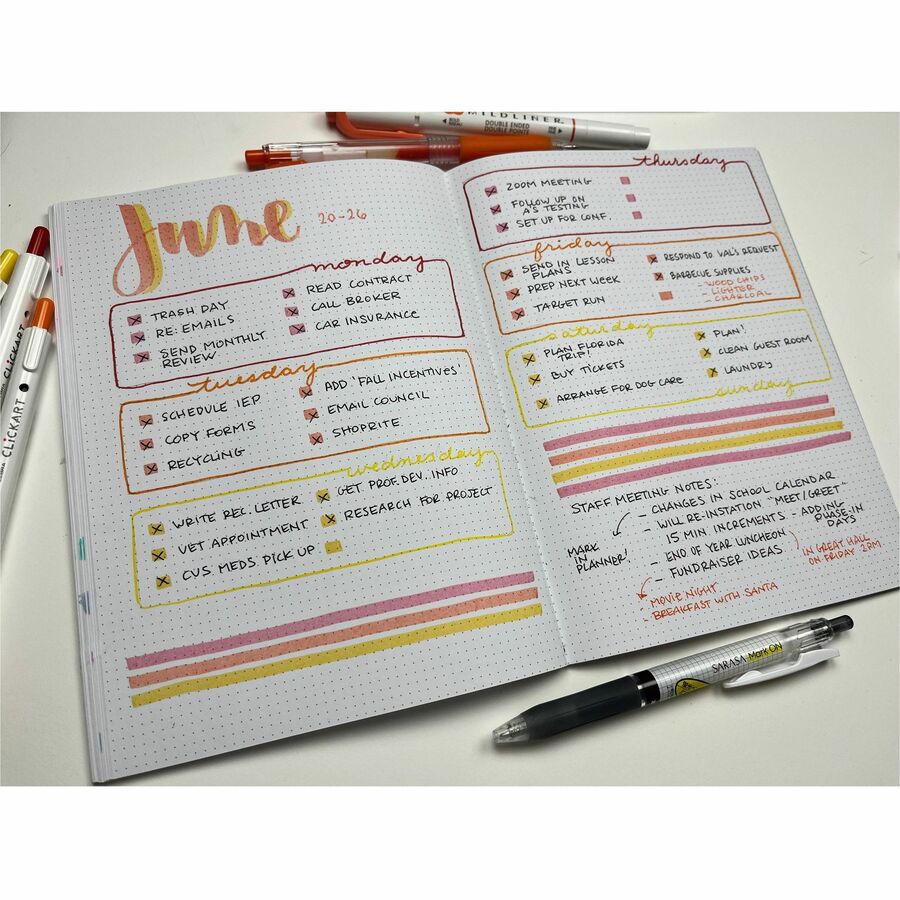 MILDLINER
DOUBLE ENDED
DOUBLE POINTS
CLICKART
CLiCKART
June 20-26
monday
TRASH DAY
RE: EMAILS
SEND MONTHLY
REVIEW
READ CONTRACT
CALL BROKER
CAR INSURANCE
tuesday
SCHEDULE IEP
COPY FORMS
RECYCLING
ADD 'FALL INCENTIVES'
EMAIL COUNCIL
SHOPRITE
wednesday
WRITE REC. LETTER
VET APPOINTMENT
CVS MEDS PICK UP
GET PROF. DEV. INFO
RESEARCH FOR PROJECT
thursday
ZOOM MEETING
FOLLOW UP ON
A'S TESTING
SET UP FOR CONF.
friday
SEND IN LESSON
PLANS
PREP NEXT WEEK
TARGET RUN
RESPOND TO VAL'S REQUEST
BARBECUE SUPPLIES
- WOOD CHIPS
LIGHTER
- CHARCOAL
saturday
PLAN FLORIDA
TRIP!
BUY TICKETS
ARRANGE FOR DOG CARE
PLAN!
CLEAN GUEST ROOM
LAUNDRY
sunday
STAFF MEETING NOTES:
- CHANGES IN SCHOOL CALENDAR
- WILL RE-INSTATION "MEET/GREET"
15 MIN INCREMENTS - ADDING
PHASE-IN
DAYS
- END OF YEAR LUNCHEON
- FUNDRAISER IDEAS
MARK
IN
PLANNER!
IN GREAT HALL
ON FRIDAY 2PM
- MOVIE NIGHT
- BREAKFAST WITH SANTA
SARASA Mark ON